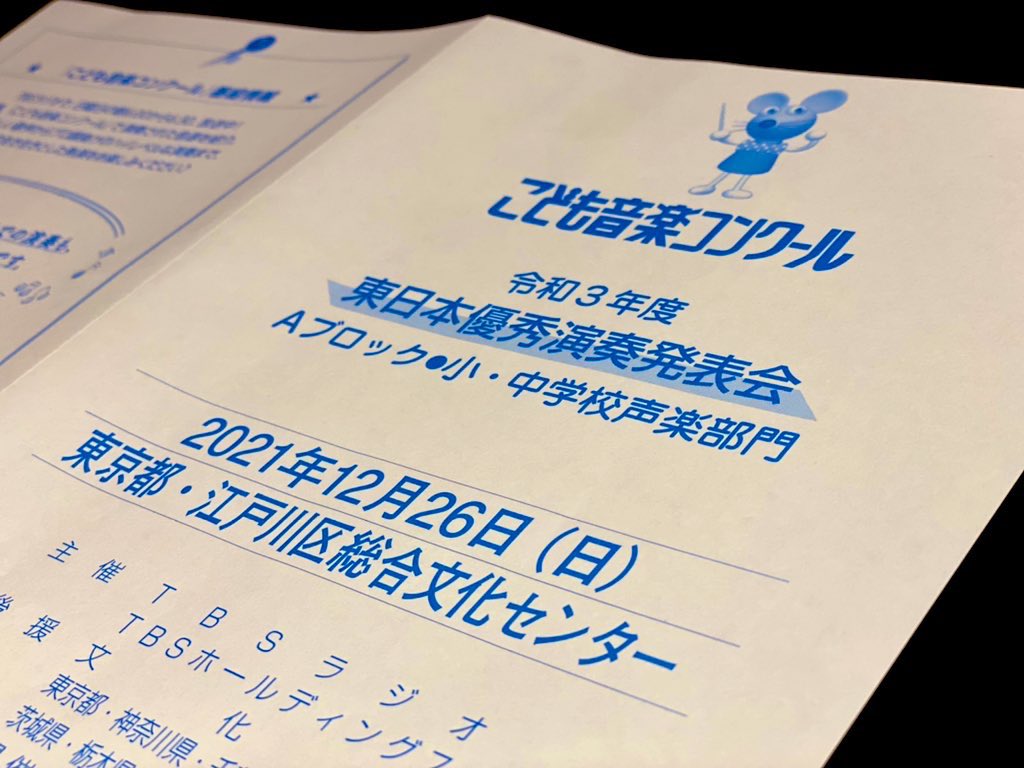 「こども音楽コンクール」番組情報
での演奏も、
です。
こども音楽コンクール
令和3年度
東日本優秀演奏発表会
Aブロック●小・中学校声楽部門
2021年12月26日（日）
東京都・江戸川区総合文化センター
主催 TBSラジオ
TBSホールディングス
後援 文化
東京都・神奈川県・千
茨城県・栃木県